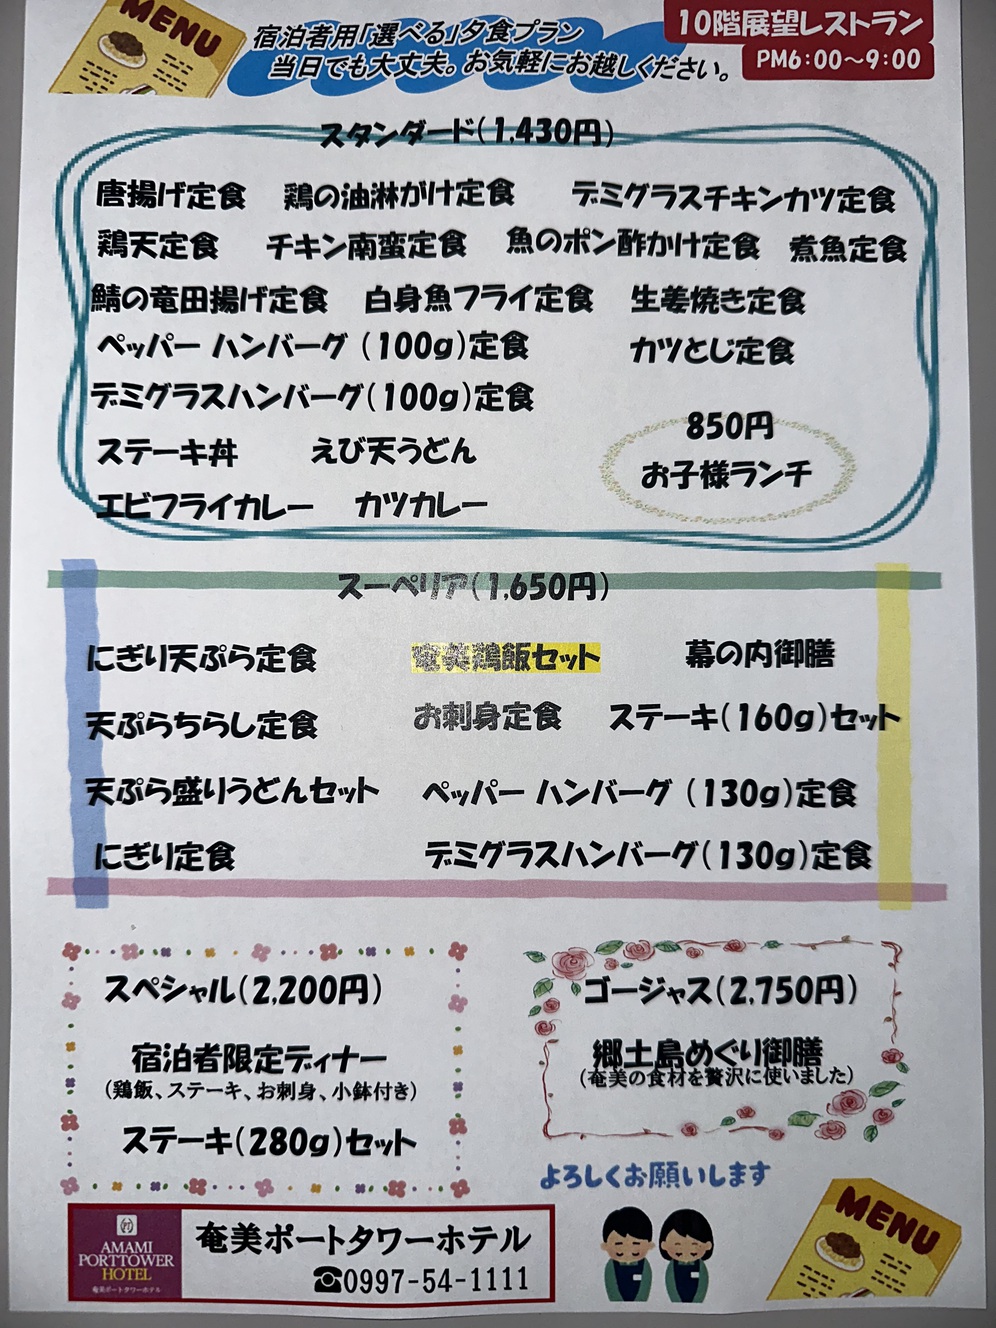 MENU
宿泊者用「選べる」夕食プラン
当日でも大丈夫。お気軽にお越しください。
10階展望レストラン
PM6:00～9:00
スタンダード(1,430円)
唐揚げ定食 鶏の油淋がけ定食 デミグラスチキンカツ定食
鶏天定食 チキン南蛮定食 魚のポン酢かけ定食 煮魚定食
鯖の竜田揚げ定食 白身魚フライ定食 生姜焼き定食
ペッパー ハンバーグ (100g)定食 カツとじ定食
デミグラスハンバーグ(100g)定食
ステーキ丼 えび天うどん
エビフライカレー カツカレー
850円
お子様ランチ
スーペリア(1,650円)
にぎり天ぷら定食 奄美鶏飯セット 幕の内御膳
天ぷらちらし定食 お刺身定食 ステーキ(160g)セット
天ぷら盛りうどんセット ペッパー ハンバーグ (130g)定食
にぎり定食 デミグラスハンバーグ(130g)定食
スペシャル(2,200円)
宿泊者限定ディナー
(鶏飯、ステーキ、お刺身、小鉢付き)
ステーキ(280g)セット
ゴージャス(2,750円)
郷土島めぐり御膳
(奄美の食材を贅沢に使いました)
よろしくお願いします
AMAMI
PORTTOWER
HOTEL
奄美ポートタワーホテル
奄美ポートタワーホテル
☎0997-54-1111
MENU